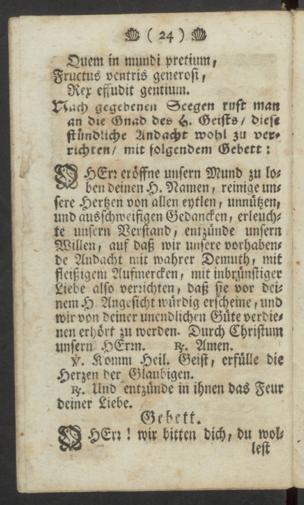 ( 24 )
Quem in mundi pretium,
Fructus ventris generosi,
Rex effudit gentium.
Nach gegebenen Seegen rufft man
an die Gnad des H. Geists / diese
stündliche Andacht wohl zu ver-
richten / mit folgendem Gebett:
O HErr eröffne unsern Mund zu lo-
ben deinen H. Namen, reinige un-
sere Hertzen von allen eytlen, unnützen,
und ausschweifigen Gedancken, erleuch-
te unsern Verstand, entzünde unsern
Willen, auf daß wir unsere vorhaben-
de Andacht mit wahrer Demuth, mit
fleißigem Aufmercken, mit inbrünstiger
Liebe also verrichten, daß sie vor dei-
nem H. Angesicht würdig erscheine, und
wir von deiner unendlichen Güte verdie-
nen erhört zu werden. Durch Christum
unsern HErrn. ℟. Amen.
℣. Komm Heil. Geist, erfülle die
Herzen der Glaubigen.
℟. Und entzünde in ihnen das Feur
deiner Liebe.
Gebett.
O HErr! wir bitten dich, du wol-
lest